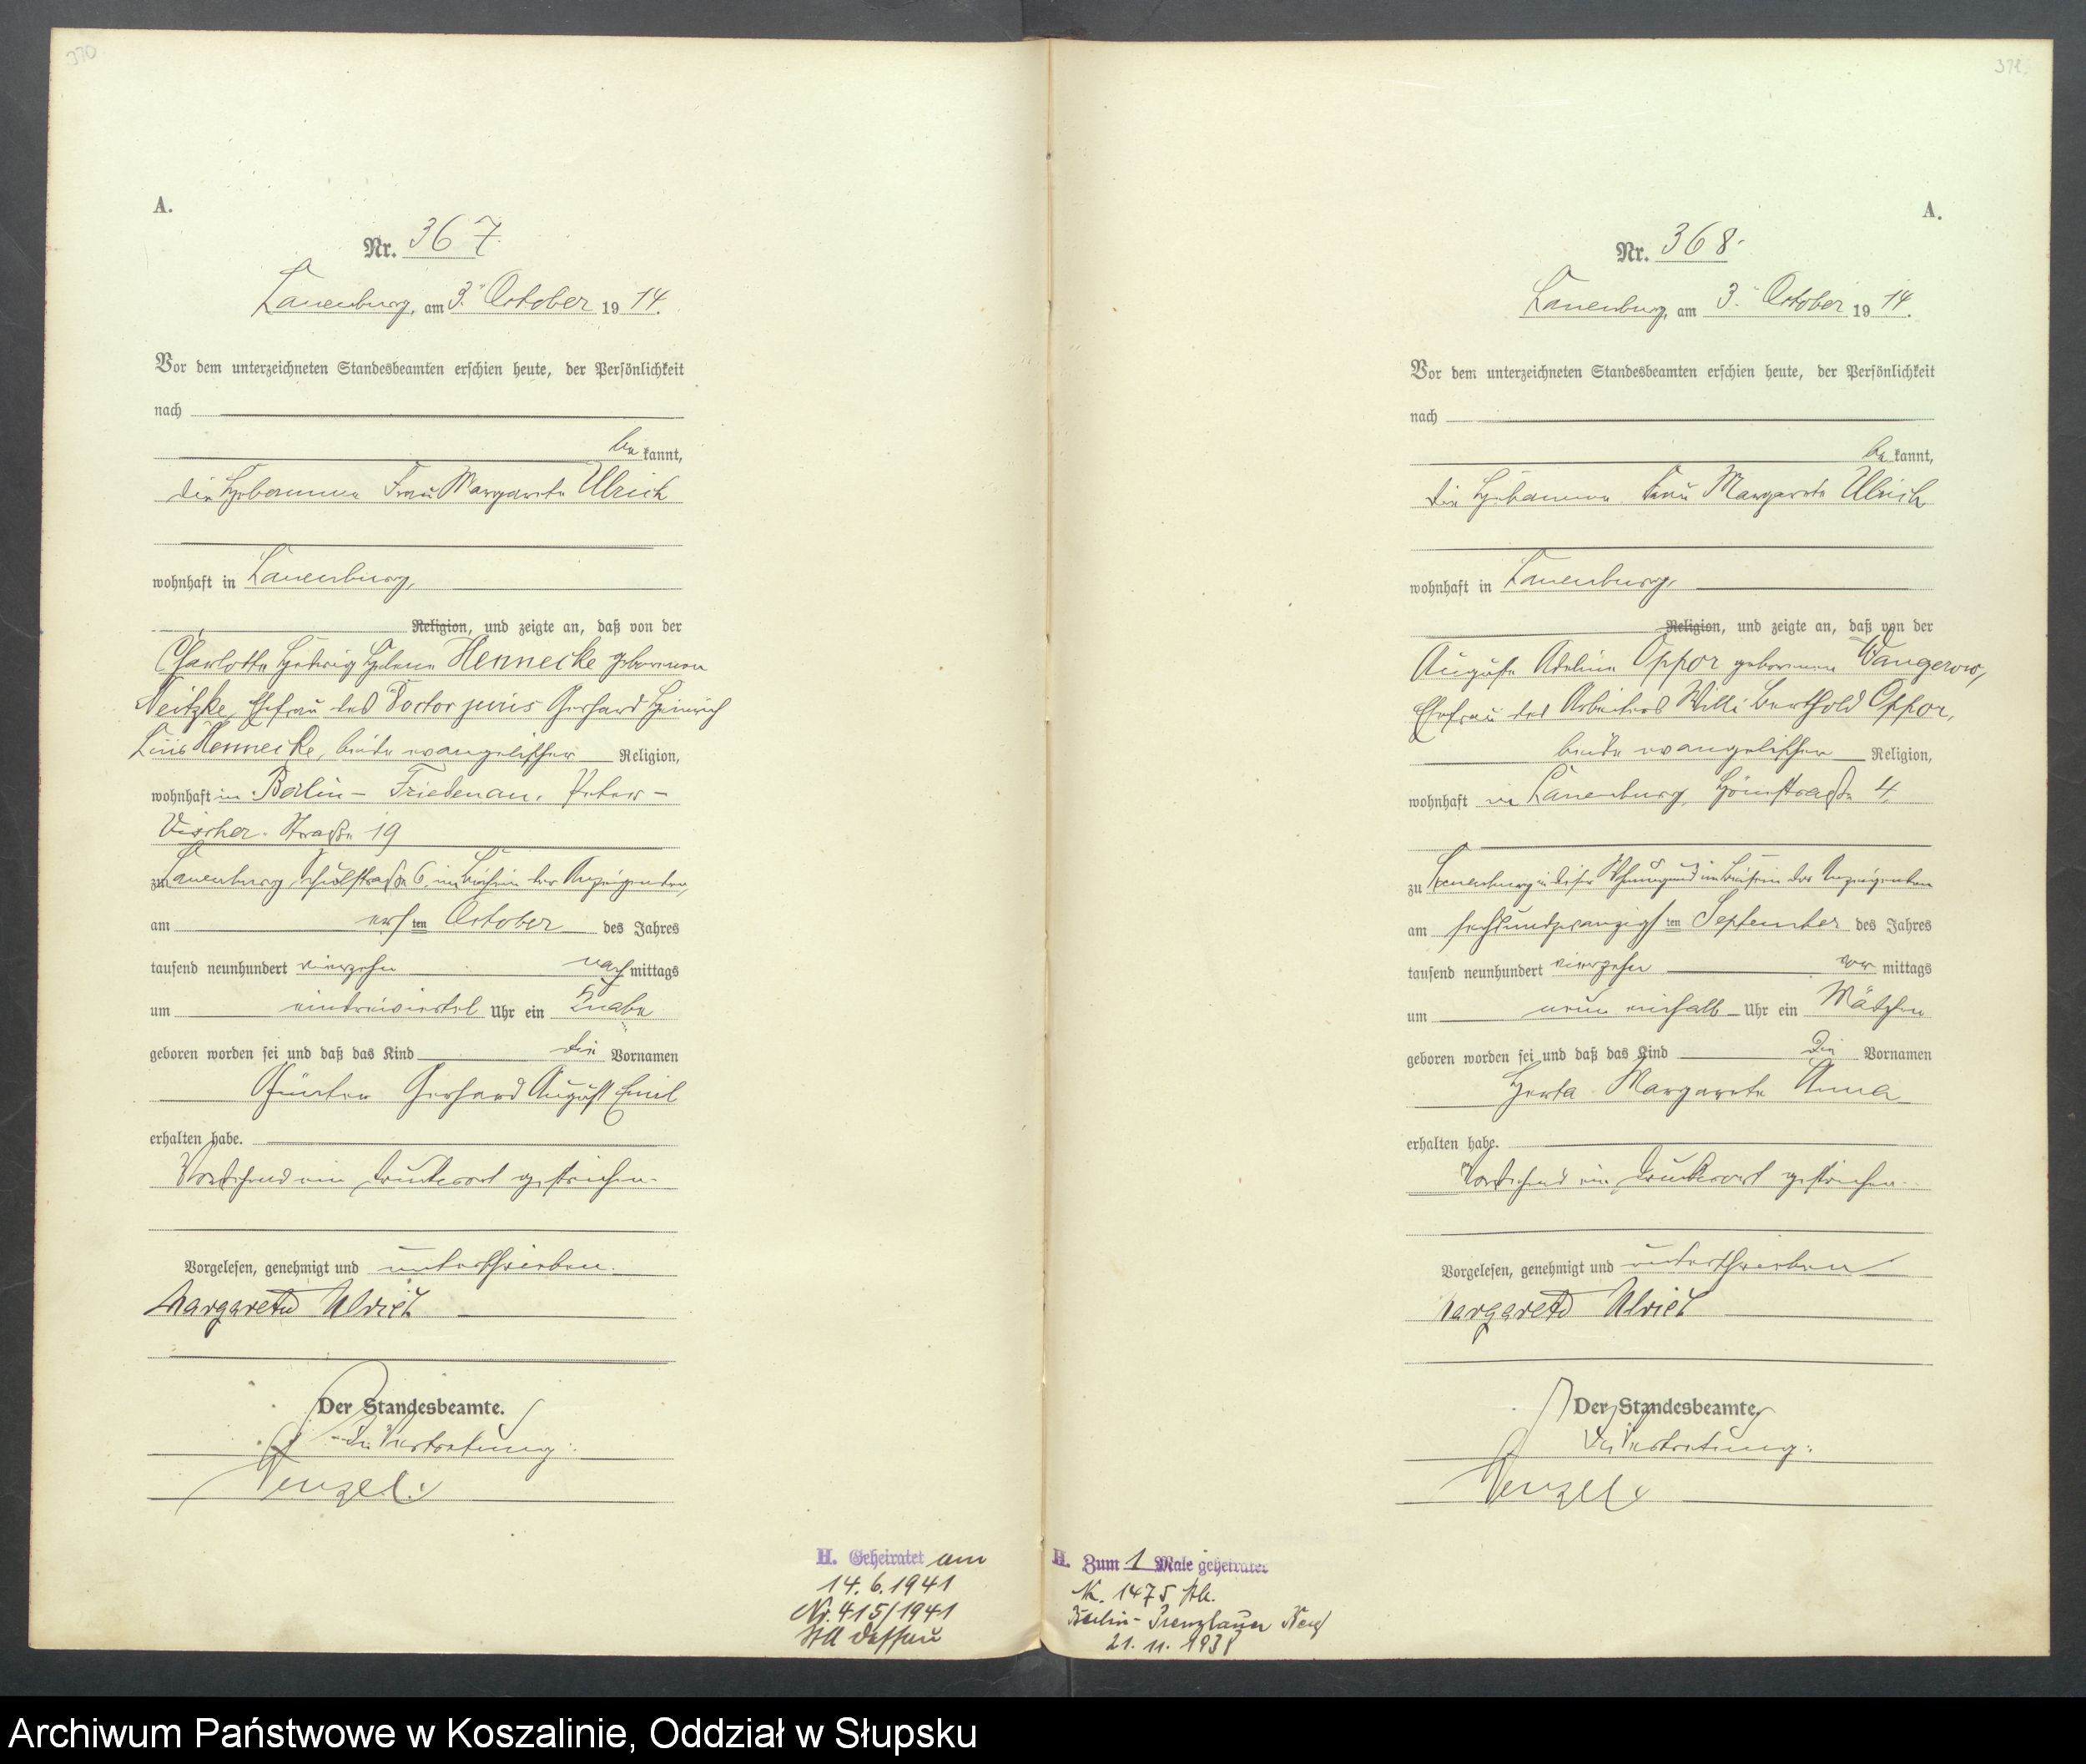 370
A.
Nr. 367.
Lauenburg, am 3. October 1914.
Vor dem unterzeichneten Standesbeamten erschien heute, der Persönlichkeit
nach
be kannt,
die Hebamme Frau Margarete Ulrich
wohnhaft in Lauenburg,
Religion, und zeigte an, daß von der
Charlotte Hedwig Helene Hennecke geborenen
Neitzke, Ehefrau des Doctor juris Gerhard Heinrich
Luis Hennecke, beide evangelischer Religion,
wohnhaft in Berlin-Friedenau, Peter-
Vischer-Straße 19
zu Lauenburg, Schulstraße 6, im Beisein der Anzeigenden,
am ersten October des Jahres
tausend neunhundert vierzehn nachmittags
um eindreiviertel Uhr ein Knabe
geboren worden sei und daß das Kind die Vornamen
Günter Gerhard August Emil
erhalten habe.
Vorstehend ein Druckwort gestrichen.
Vorgelesen, genehmigt und unterschrieben.
Margarete Ulrich
Der Standesbeamte.
In Vertretung:
Wenzel.
H. Geheiratet am
14.6.1941
Nr. 415/1941
StA Dessau
A.
Nr. 368.
Lauenburg, am 3. October 1914.
Vor dem unterzeichneten Standesbeamten erschien heute, der Persönlichkeit
nach
be kannt,
die Hebamme Frau Margarete Ulrich
wohnhaft in Lauenburg,
Religion, und zeigte an, daß von der
Auguste Adeline Oppor geborenen Wangerow,
Ehefrau des Arbeiters Willi Berthold Oppor,
beide evangelischer Religion,
wohnhaft in Lauenburg, 4,
zu Lauenburg in dieser Wohnung und im Beisein der Anzeigenden
am sechsundzwanzigsten September des Jahres
tausend neunhundert vierzehn vormittags
um neun einhalb Uhr ein Mädchen
geboren worden sei und daß das Kind die Vornamen
Herta Margarete Anna
erhalten habe.
Vorstehend ein Druckwort gestrichen.
Vorgelesen, genehmigt und unterschrieben
Margarete Ulrich
Der Standesbeamte.
In Vertretung:
Wenzel.
H. Zum 1 Male geheiratet
Nr. 1475 StA.
Berlin-Prenzlauer Berg
21.11.1938
Archiwum Państwowe w Koszalinie, Oddział w Słupsku